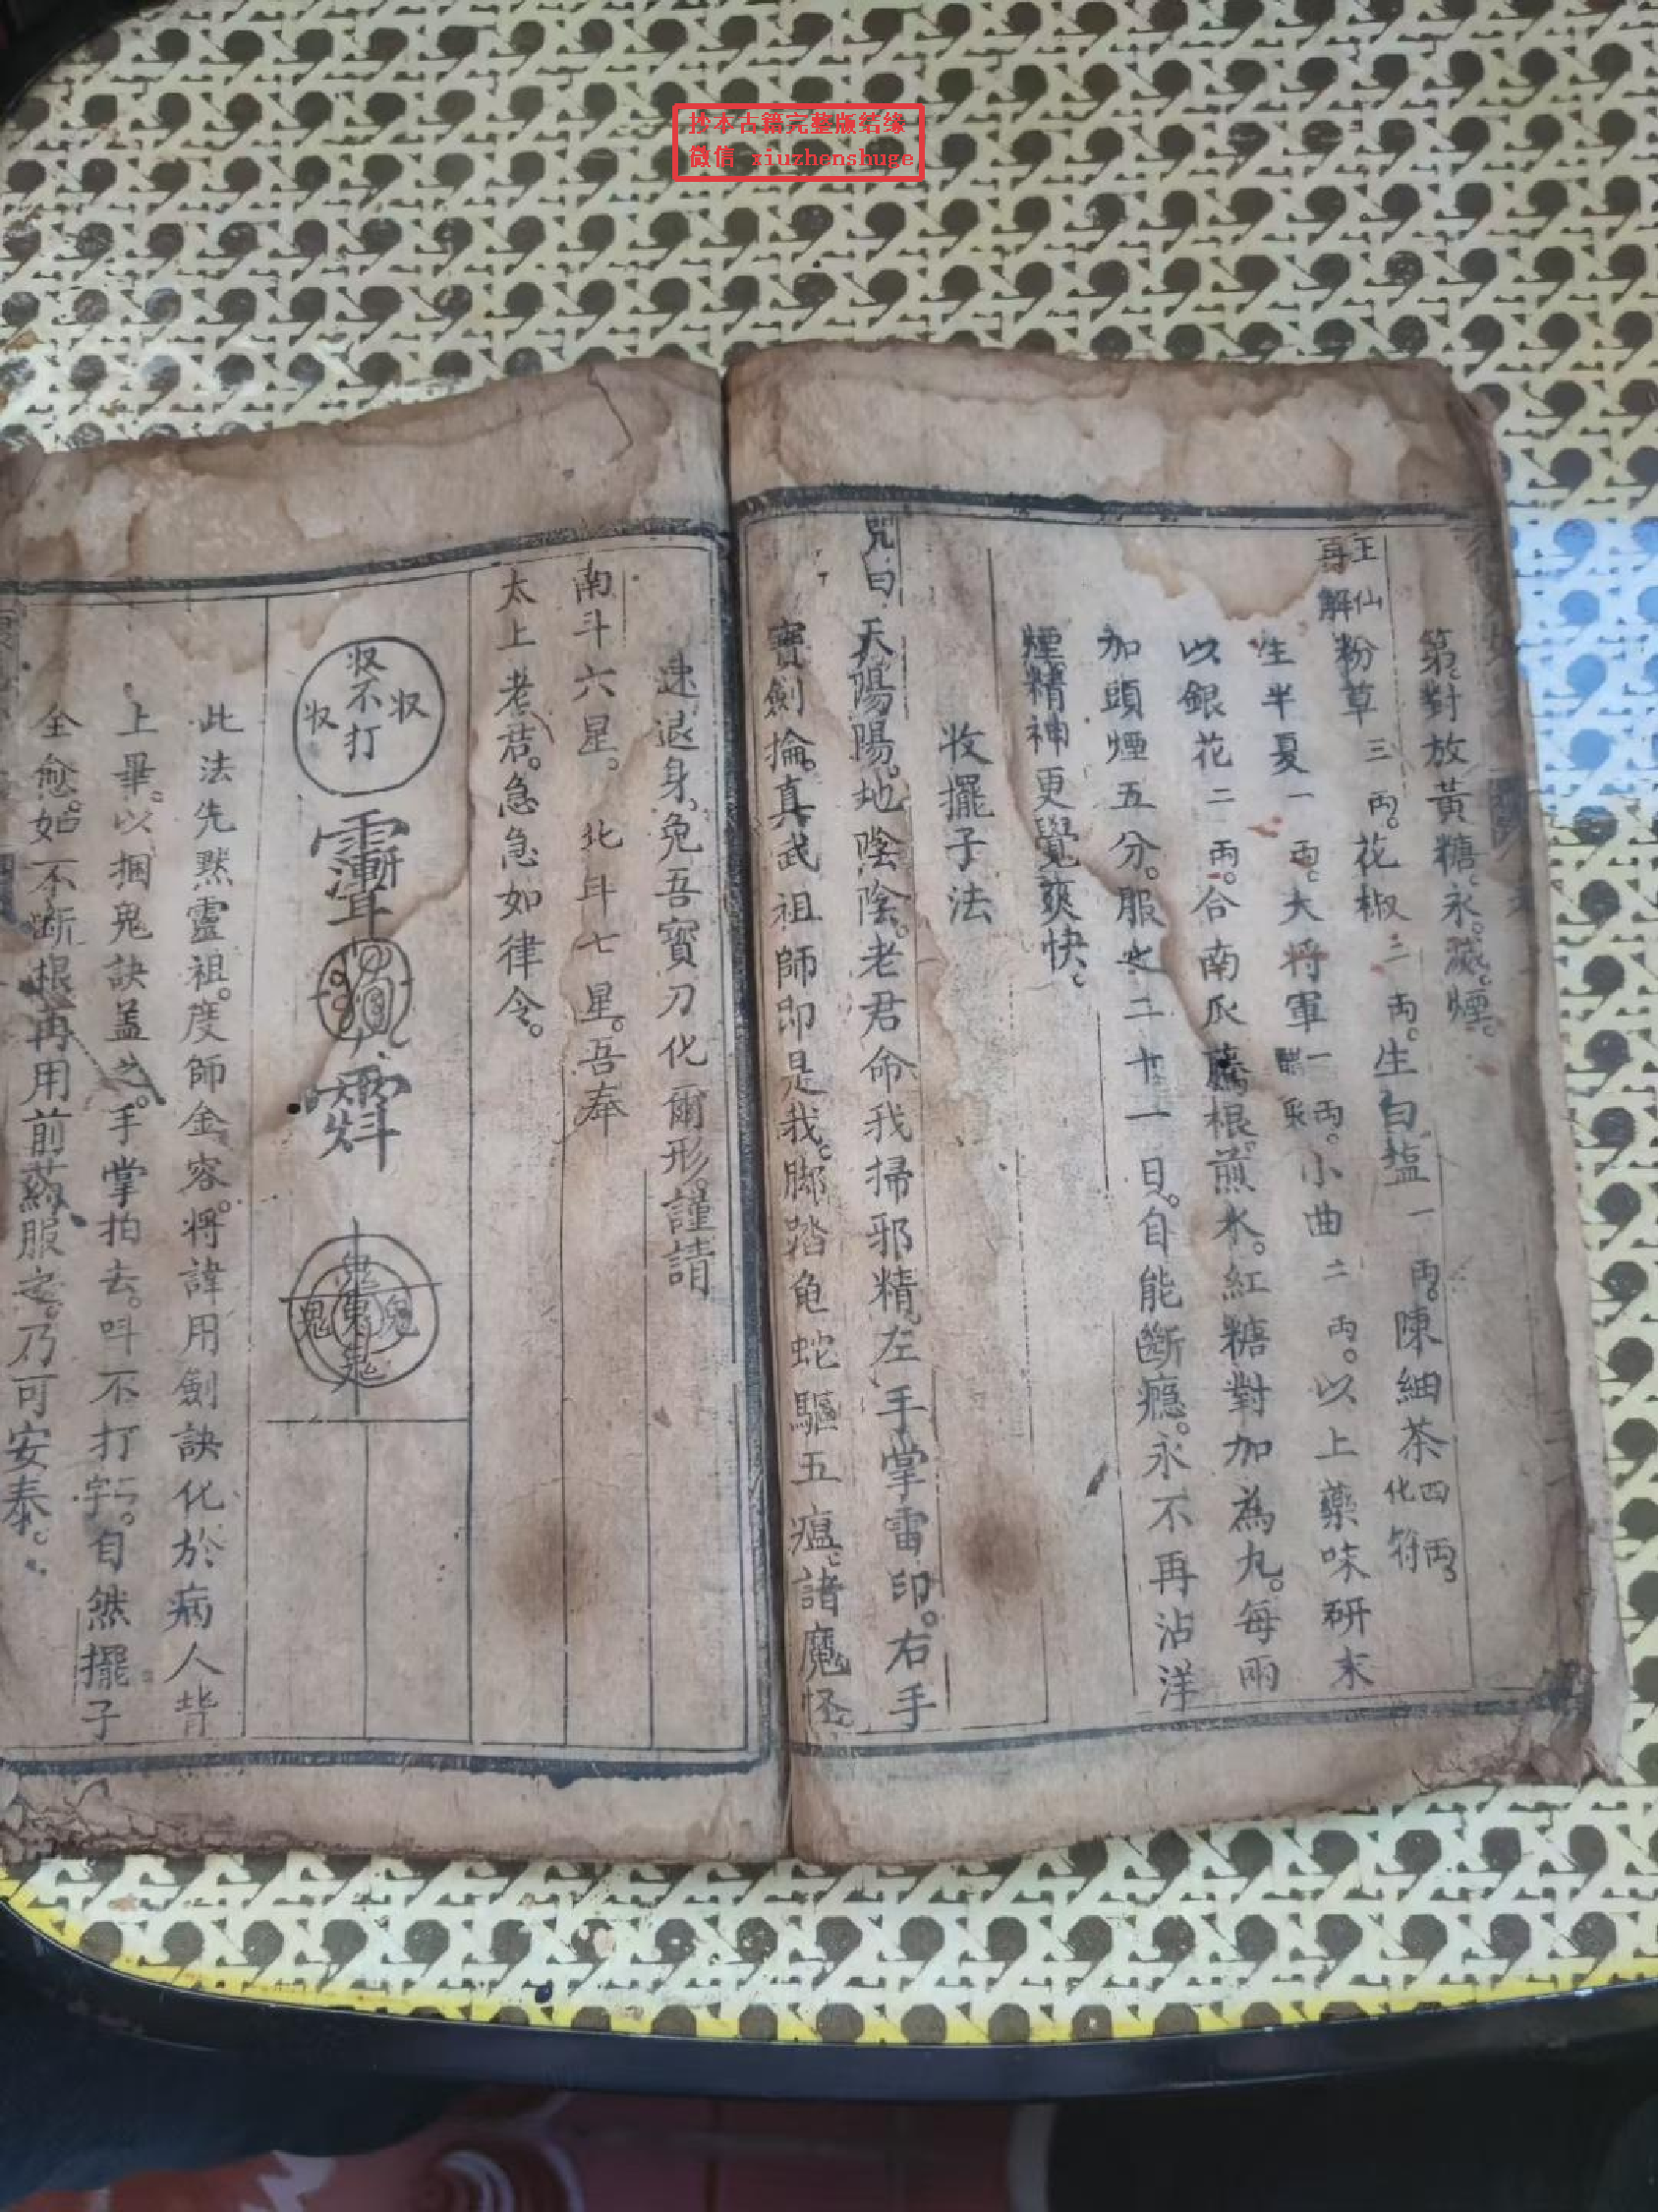 抄本古籍完整版结缘
微信 xiuzhenshuge
第對放黃糖。永滅。煙。
王仙
再解
粉草三兩。花椒三兩。生白塩一兩。陳細茶四兩
化符
生半夏一兩。大將軍一兩。小曲二兩。以上藥味研末
以銀花二兩。合南瓜藤根煎水。紅糖對加為丸。每兩
加頭煙五分。服之二十一日。自能斷癮。永不再沾洋
煙精神更覺爽快。
收擺子法
咒曰天陽陽。地陰陰。老君命我掃邪精左手掌雷印。右手
寶劍掄。真武祖師即是我。脚踏龟蛇驅五瘟。諸魔怪
速退身免吾寳刀化爾形。謹請
南斗六星。北斗七星。吾奉
太上老君。急急如律令。
収
収不収
打
鬼
鬼鬼鬼
鬼
此法先黙靈祖。度師金容。將諱用劍訣化於病人背
上畢。以捆鬼訣盖之。手掌拍去。呌不打二字。自然擺子
全愈。如不断根再用前葯服之。乃可安泰。